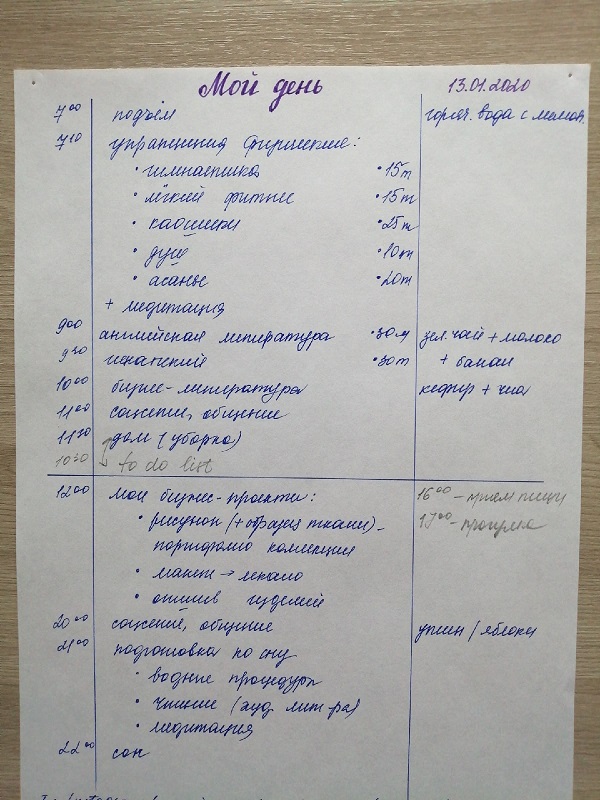 Мой день 13.01.2020
7⁰⁰ подъём горяч. вода с лимон.
7¹⁰ упражнения физические:
• гимнастика • 15m
• лёгкий фитнес • 15m
• 25m
• душ • 10m
• асаны • 20m
+ медитация
9⁰⁰ английская литература • 30м зел. чай + молоко
9³⁰ испанский • 30m + банан
10⁰⁰ бизнес-литература кефир + чиа
11⁰⁰ соцсети, общение
11³⁰ дом (уборка)
10³⁰ to do list
12⁰⁰ мои бизнес-проекты: 16⁰⁰ - приём пищи
• рисунок (+ образец ткани) - 17⁰⁰ - прогулка
портфолио коллекции
• макет → лекало
• отшив изделий
20⁰⁰ соцсети, общение ужин / яблоки
21⁰⁰ подготовка ко сну
• водные процедуры
• чтение (худ. лит-ра)
• медитация
22⁰⁰ сон